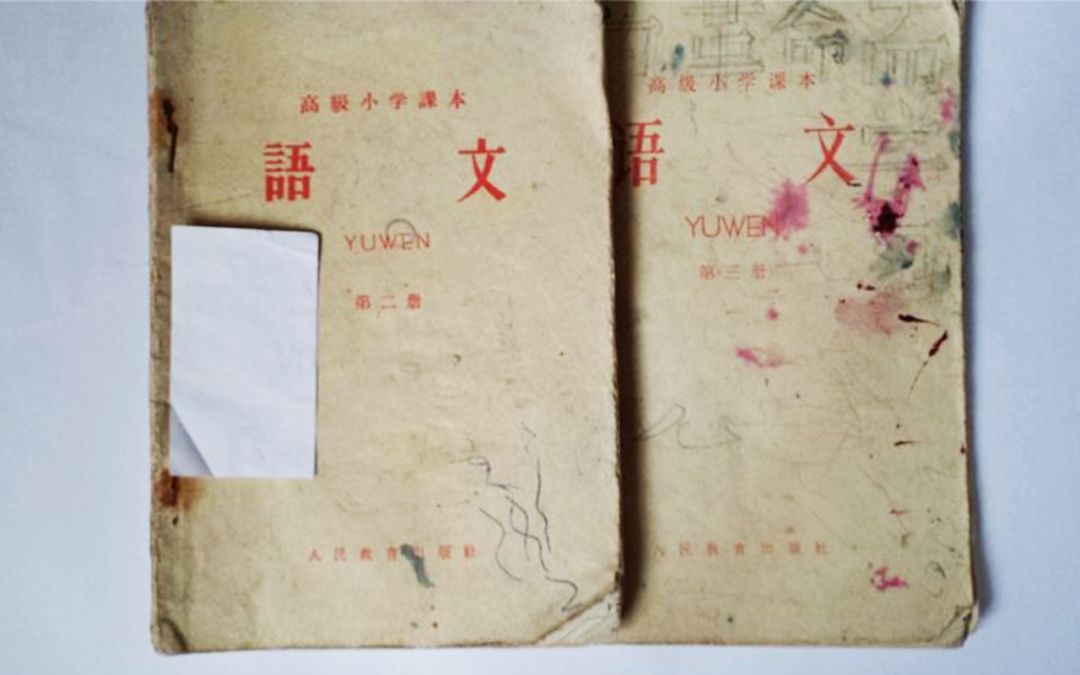 高級小学課本
語文
YUWEN
第二册
人民教育出版社
高级小学课本
语文
YUWEN
第三册
人民教育出版社